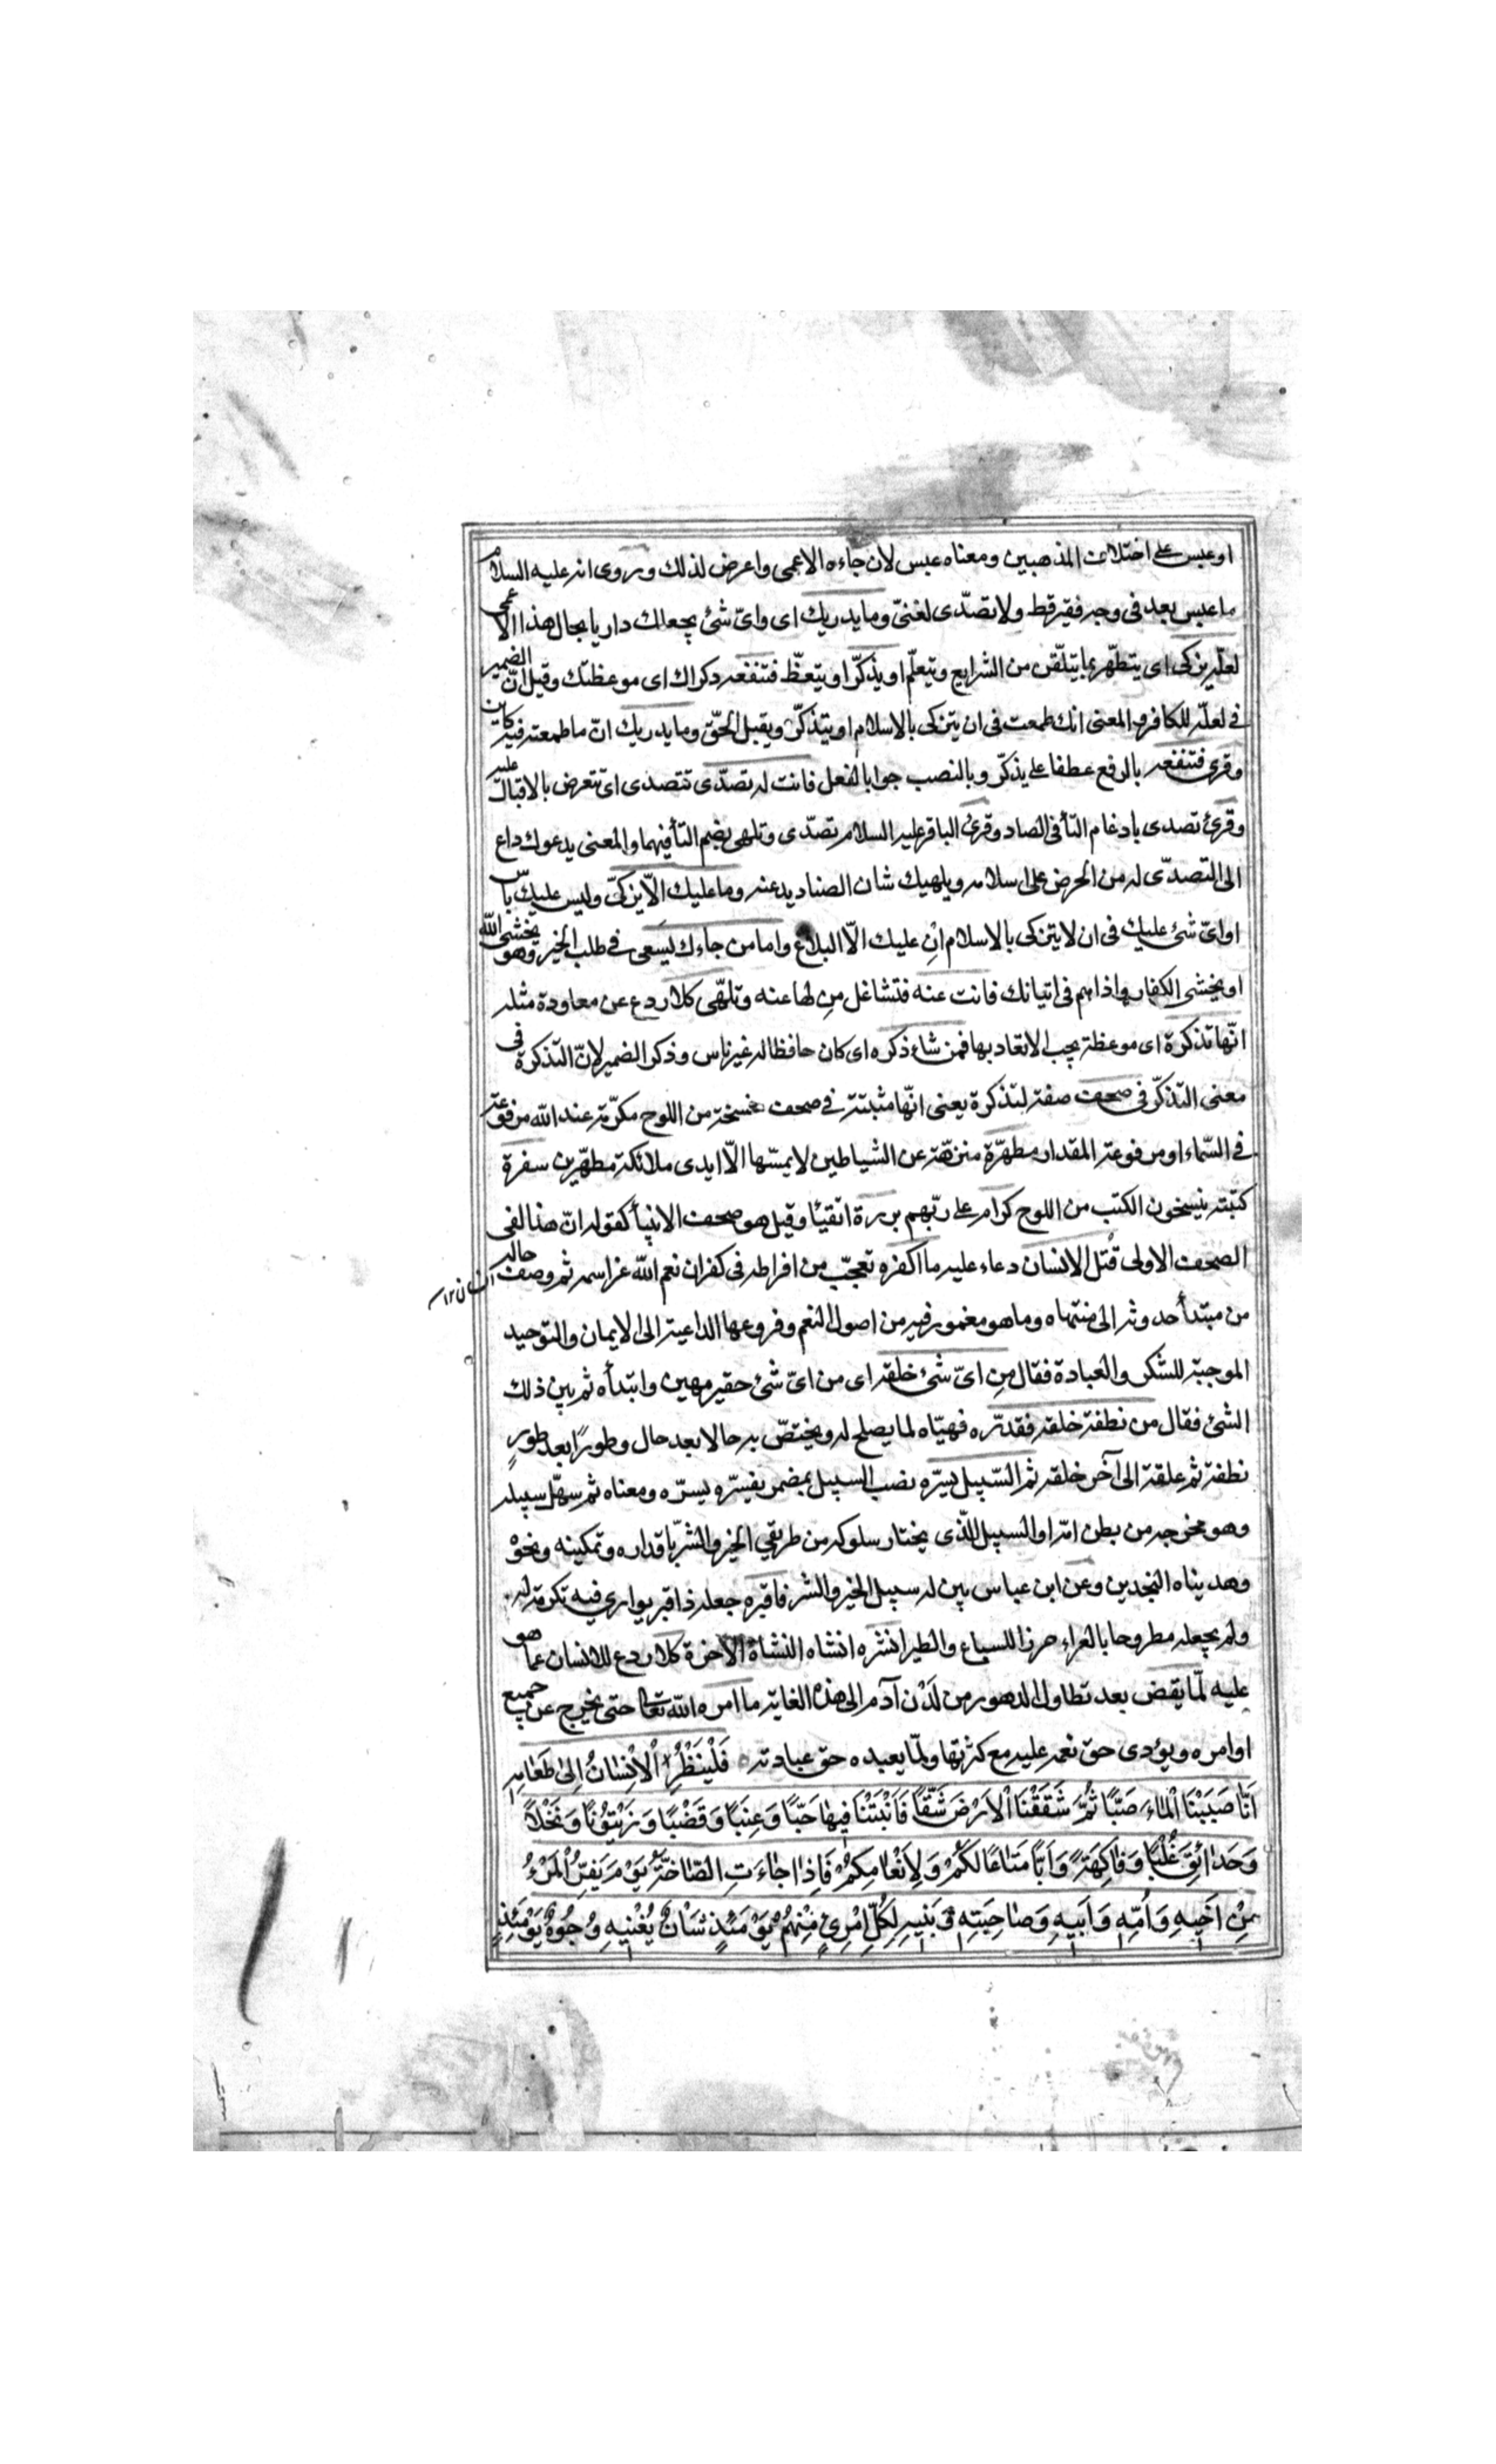 او عبس على اختلاف المذهبين ومعناه عبس لان جاءه الاعمى واعرض لذلك وروى انه عليه السلام
ما عبس بعد فى وجه فقير قط ولا تصدّى لغنىّ وما يدريك اى واىّ شئ يجعلك داريا بحال هذا الاعمى
لعلّه يزكى اى يتطهّر بما يتلقّن من الشرايع ويتعلّم او يذكّر او يتعظّ فتنفعه ذكراك اى موعظتك وقيل انّ الضمير
فى لعلّه للكافر والمعنى انك طمعت فى ان يتزكى بالاسلام او يتذكّر ويقبل الحقّ وما يدريك انّ ما طمعته فيه كاين
وقرئ فتنفعه بالرفع عطفا على يذكّر وبالنصب جوابا لفعل فانت له تصدّى تتصدى اى تتعرض بالاقبال عليه
وقرئ تصدى بادغام التأ فى الصاد وقرئ الباقر عليه السلام تصدّى وتلهى بضم التأ فيهما والمعنى يدعوك داع
الى التصدّى له من الحرض على اسلامه ويلهيك شان الصناديد عنه وما عليك الّا يزكّى وليس عليك بأس
او اىّ شئ عليك فى ان لا يتزكى بالاسلام اِن عليك الّا البلاغ واما من جاءك يسعى فى طلب الخير وهو يخشى الله
او يخشى الكفار واذاهم فى اتيانك فانت عنه فتشاغل مِن لها عنه وتلهّى كلا ردع عن معاودة مثله
انّها تذكرة اى موعظة يجب الاتعاد بها فمن شاء ذكره اى كان حافظا له غير ناس وذكر الضمير لانّ التذكرة فى
معنى التذكّر فى صحف صفة لتذكرة يعنى انّها مثبتة فى صحف منسخة من اللوح مكرّمة عند الله مرفوعة
فى السّماء او مرفوعة المقدار مطهّرة منزّهة عن الشياطين لا يمسّها الّا ايدى ملائكة مطهّرين سفرة
كتبة ينسخون الكتب من اللوح كرام على ربّهم بررة اتقيئا وقيل هو صحف الانبيأ كقوله انّ هذا لفى
الصحف الاولى قُتل الانسان دعاء عليه ما اكفره تعجّب من افراطه فى كفران نعم الله عزاسمه ثم وصف حاله
من مبتدأ حدوثه الى منتهاه وما هو مغمور فيه من اصول النعم وفروعها الداعية الى الايمان والتوحيد
الموجبة للشكر والعبادة فقال مِن اىّ شئ خلقه اى من اىّ شئ حقير مهين وابتدأه ثم بين ذلك
الشئ فقال من نطفة خلقه فقدّره فهيّاه لما يصلح له ويختصّ به حالا بعد حال وطوراً بعد طورٍ
نطفة ثم علقة الى آخر خلقه ثم السّبيل يسّره نصب السبيل بمضمر يفسّره يسّره ومعناه ثم سهّل سبيله
وهو مخرجه من بطن امّه او السبيل الّذى يختار سلوكه من طريقى الخير والشر باقداره وتمكينه ونحوه
وهديناه النجدين وعن ابن عباس بين له سبيل الخير والشر فاقبره جعله ذا قبر يوارى فيه تكرمة له
ولم يجعله مطروحا بالعراء حرزا للسباع والطير انشره انشاه النشاة الاخرة كلا ردع للانسان عما هو
عليه لمّا يقض بعد تطاول الدهور من لَدُن آدم الى هذه الغاية ما امره الله تعالى حتى يخرج عن جميع
اوامره ويؤدى حق نعمه عليه مع كثرتها ولمّا يعبده حق عبادته فَلْيَنْظُرِ الْاِنْسَانُ اِلىٰ طَعَامِهِ
اَنَّا صَبَبْنَا الْمَاءَ صَبًّا ثُمَّ شَقَقْنَا الْاَرْضَ شَقًّا فَاَنْبَتْنَا فِيهَا حَبًّا وَعِنَبًا وَقَضْبًا وَزَيْتُونًا وَنَخْلًا
وَحَدَائِقَ غُلْبًا وَفَاكِهَةً وَاَبًّا مَتَاعًا لَكُمْ وَلِاَنْعَامِكُمْ فَاِذَا جَاءَتِ الصَّاخَّةُ يَوْمَ يَفِرُّ الْمَرْءُ
مِنْ اَخِيهِ وَاُمِّهِ وَاَبِيهِ وَصَاحِبَتِهِ وَبَنِيهِ لِكُلِّ امْرِئٍ مِنْهُمْ يَوْمَئِذٍ شَاْنٌ يُغْنِيهِ وُجُوهٌ يَوْمَئِذٍ